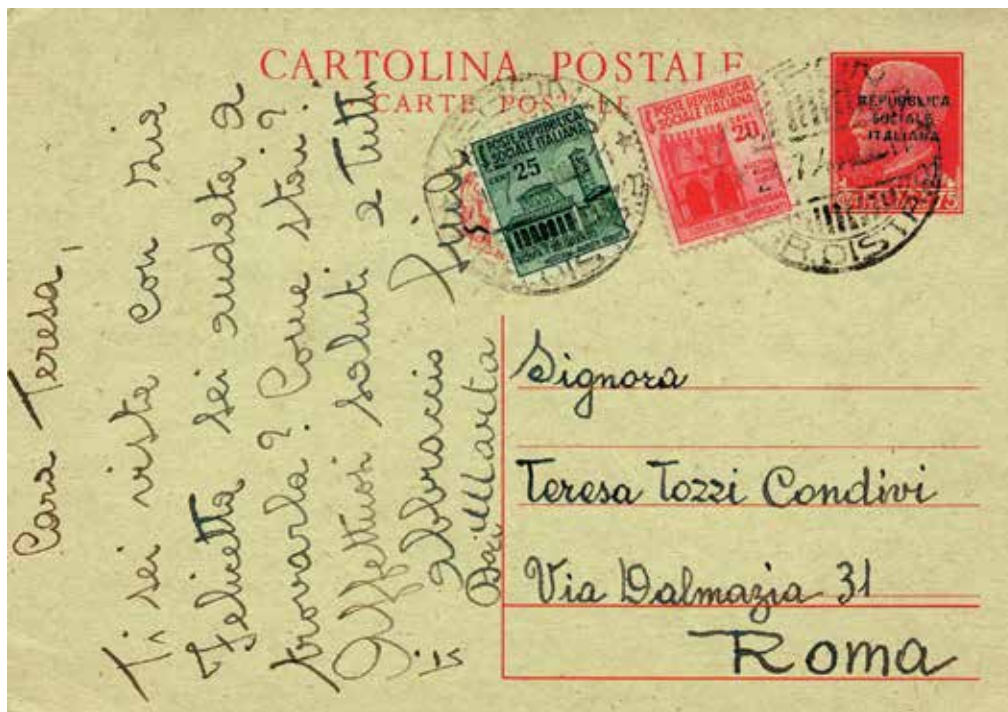 CARTOLINA POSTALE
CARTE POSTALE
POSTE REPUBBLICA
SOCIALE ITALIANA
25
POSTE REPUBBLICA
SOCIALE ITALIANA
20
REPUBBLICA
SOCIALE
ITALIANA
Cara Teresa,
Ti sei vista con zia
Felicetta sei andata a
trovarla? Come stai?
Affettuosi saluti a tutti
abbraccio
Marta
Signora
Teresa Tozzi Condivi
Via Dalmazia 31
Roma